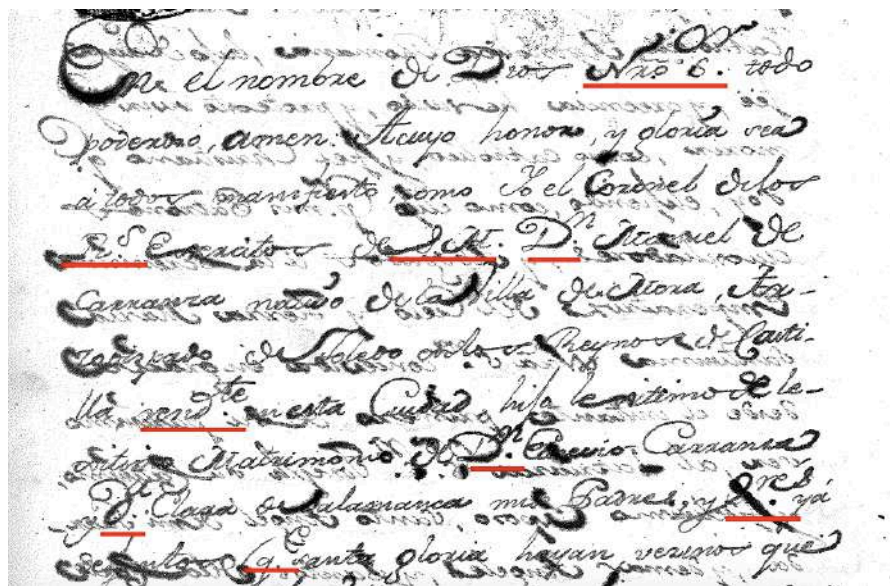 En el nombre de Dios Nrõ S.or todo
poderoso, amen. Acuyo honor, y gloria sea
á todos manifiesto, como Yo el Coronel delos
R.s Exercitos de S.M. D.n Manuel de
Carranza natuõ de la Villa de Mora, Ar-
zobizpado de Toledo enlos Reynos de Casti-
lla, rend.te en esta Ciudad, hijo lexitimo de le-
gitimo Matrimonio de D.n Carranza
D.a Clara de Salamanca mis Padres, y ya
q.e Santa gloria hayan verinos que